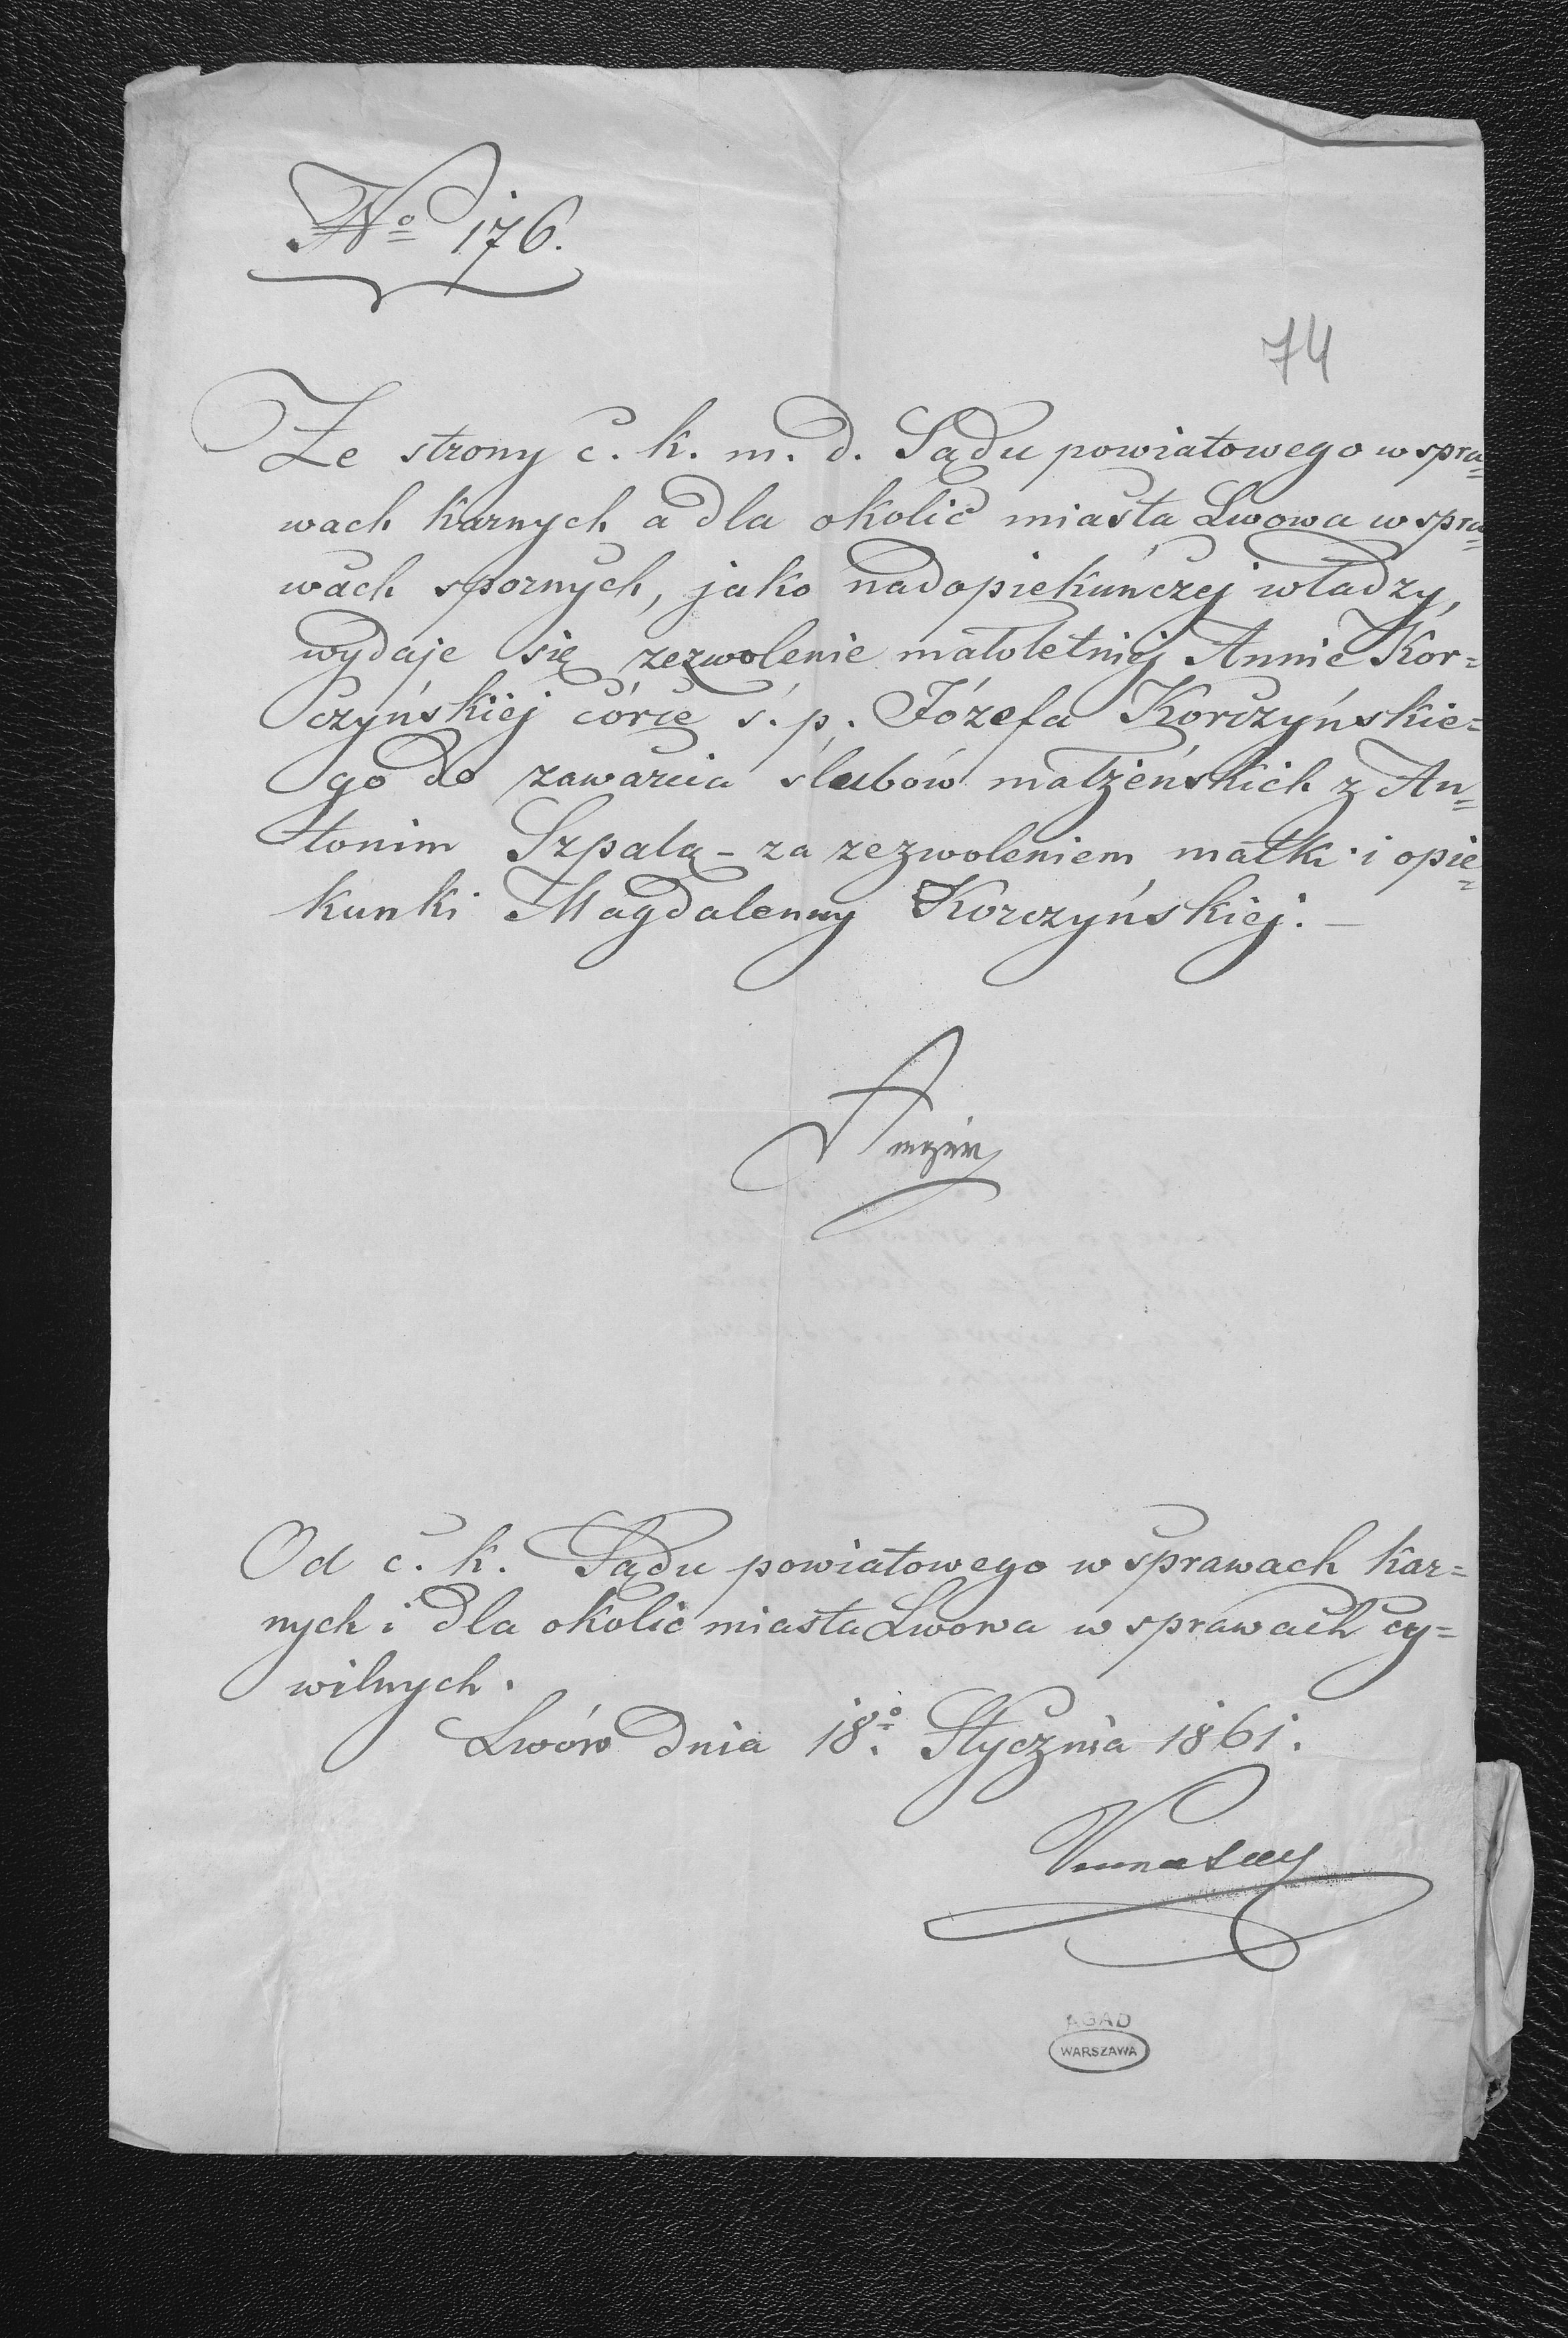 No 176.
74
Ze strony c. k. m. d. Sądu powiatowego w spra=
wach karnych a dla okolic miasta Lwowa w spra=
wach spornych, jako nadopiekuńczej władzy,
wydaje się zezwolenie małoletniej Annie Kor=
czyńskiej córce ś. p. Józefa Korczyńskie=
go do zawarcia ślubów małżeńskich z An=
tonim Szpalą – za zezwoleniem matki i opie=
kunki Magdalenny Korczyńskiej. –
Od c. k. Sądu powiatowego w sprawach kar=
nych i dla okolic miasta Lwowa w sprawach cy=
wilnych.
Lwów dnia 18o. Stycznia 1861.
AGAD
WARSZAWA